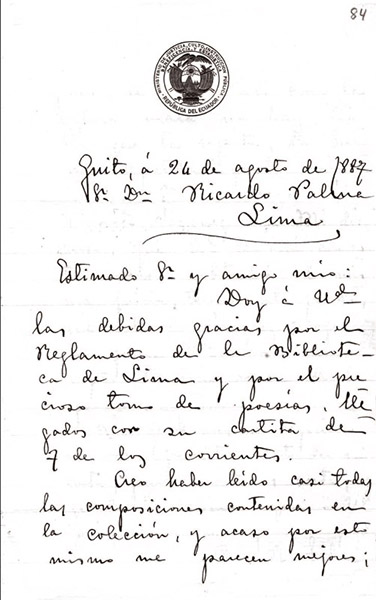 84
MINISTERIO DE JUSTICIA, CULTO, INSTRUCCIÓN PÚBLICA, BENEFICENCIA Y ESTADÍSTICA
REPÚBLICA DEL ECUADOR
Quito, á 24 de agosto de 1887
Sr. Dn Ricardo Palma
Lima
Estimado Sr. y amigo mío:
Doy á Ud.
las debidas gracias por el
Reglamento de la Bibliote-
ca de Lima y por el pre-
cioso tomo de poesías, lle-
gados con su cartita de
7 de los corrientes.
Creo haber leído casi todas
las composiciones contenidas en
la colección, y acaso por esto
mismo me parecen mejores;